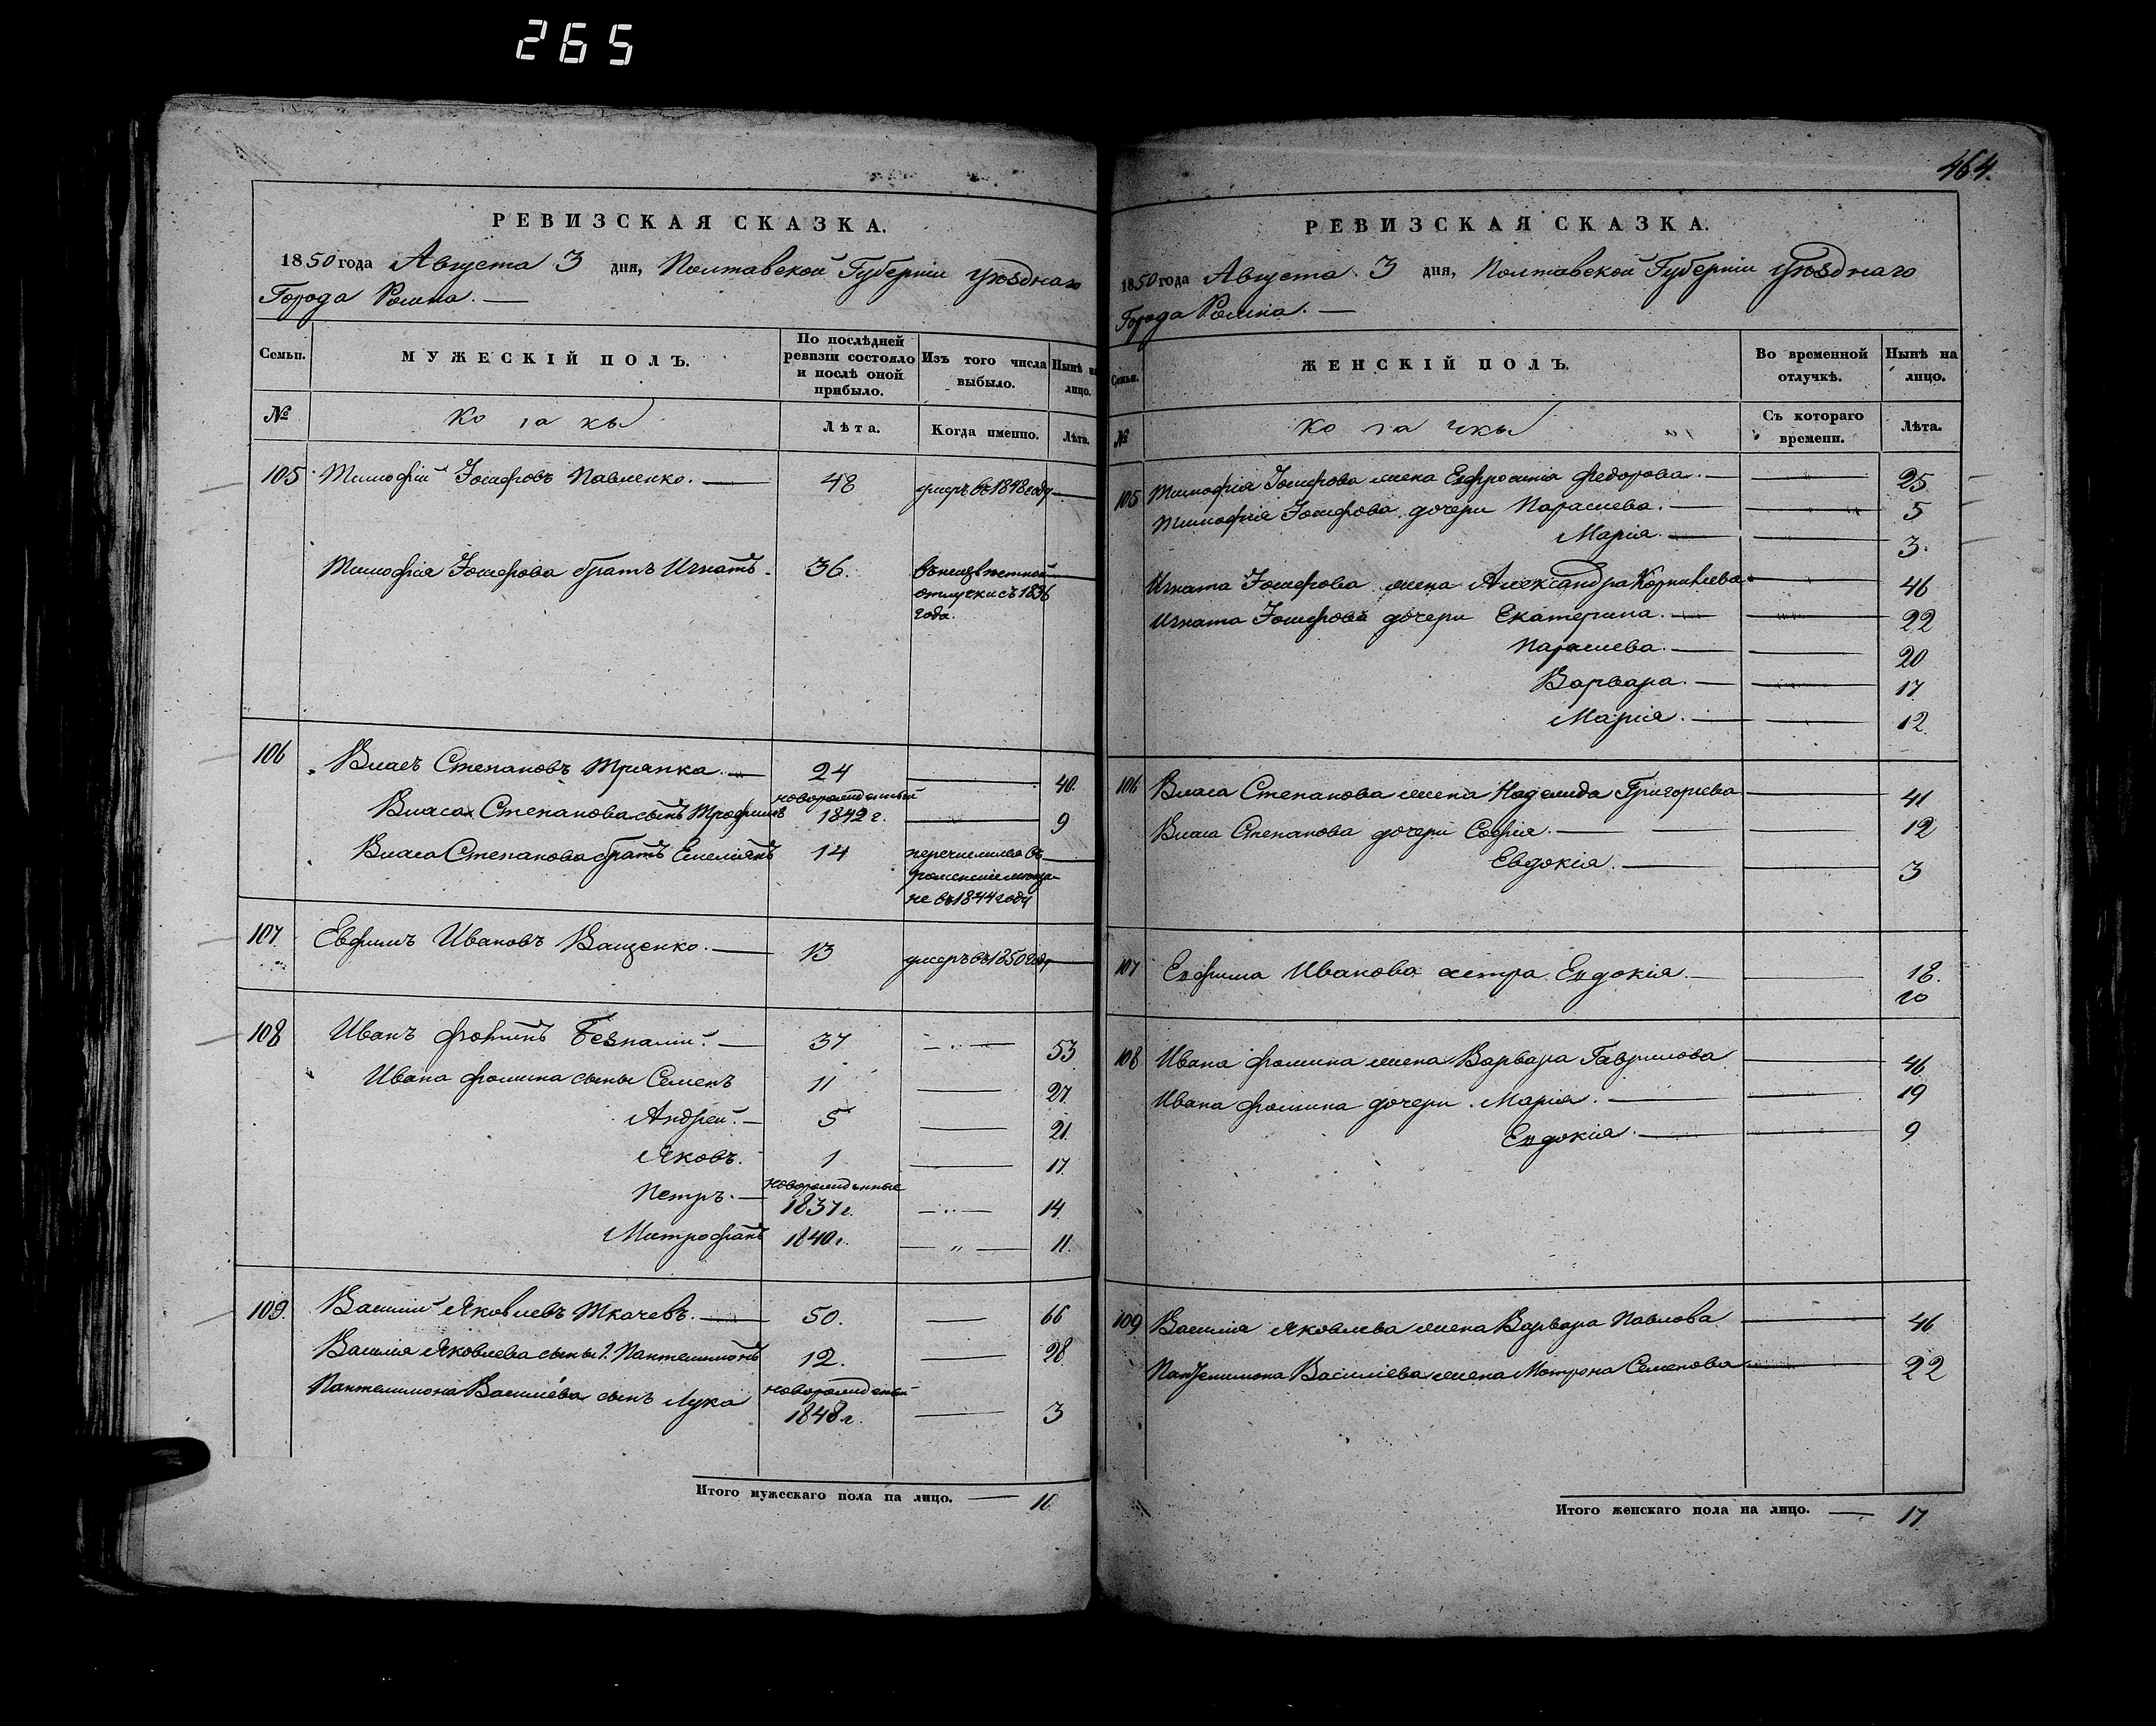 265
464.
РЕВИЗСКАЯ СКАЗКА.
1850 года Августа 3 дня, Полтавской Губерніи уѣзднаго
Города Ромна. —
Семьи. МУЖЕСКІЙ ПОЛЪ. По послѣдней ревизіи состояло и послѣ оной прибыло. Изъ того числа выбыло. Нынѣ на лицо.
№ Козаки Лѣта. Когда именно. Лѣта.
105 Тимофій Іосифовъ Павленко. — 48 умеръ въ 1848 году —
Тимофія Іосифова братъ Игнатъ. 36. въ неизвѣстной
отлучки съ 1836
года.
106 Власъ Степановъ Тряпка. — 24 — 40.
Власа Степанова сынъ Трофимъ новорожденный 1842 г. — 9
Власа Степанова братъ Емеліянъ 14 перечислился въ
роменскіе меща-
не въ 1844 году
107 Евфимъ Ивановъ Ващенко. — 13 умеръ въ 1850 году —
108 Иванъ Фоминъ Безпалій. — 37 — 53
Ивана Фомина сыны Семенъ 11 — 27.
Андрей. — 5 — 21.
Яковъ. 1 — 17.
Петръ. — новорожденные 1837 г. — 14.
Митрофанъ 1840 г. — „ — 11.
109. Василій Яковлевъ Ткачевъ. — 50. — 66
Василія Яковлева сыны 1. Пантелимонъ 12. — 28
Пантелимона Васильева сынъ Лука новорожденный 1848 г. — 3
Итого мужескаго пола на лицо. — 10.
РЕВИЗСКАЯ СКАЗКА.
1850 года Августа 3 дня, Полтавской Губерніи уѣзднаго
Города Ромна. —
Семьи. ЖЕНСКІЙ ПОЛЪ. Во временной отлучкѣ. Нынѣ на лицо.
№ Козачки Съ котораго времени. Лѣта.
105 Тимофія Іосифова жена Ефросинія Федорова. — 25
Тимофія Іосифова дочери Парасцева. — 5
Марія. — 3.
Игната Іосифова жена Александра Корнилѣева — 46
Игната Іосифова дочери Екатерина. — 22
Парасцева. — 20
Варвара. — 17
Марія. — 12.
106 Власа Степанова жена Надежда Григорьева — 41
Власа Степанова дочери Софія. — 12
Евдокія. — 3
107 Евфима Иванова сестра Евдокія. — 18.
108 Ивана Фомина жена Варвара Гаврилова — 46
Ивана Фомина дочери Марія. — 19
Евдокія. — 9
109 Василія Яковлева жена Варвара Павлова — 46
Пантелимона Васильева жена Мотрона Семенова — 22
Итого женскаго пола на лицо. — 17.